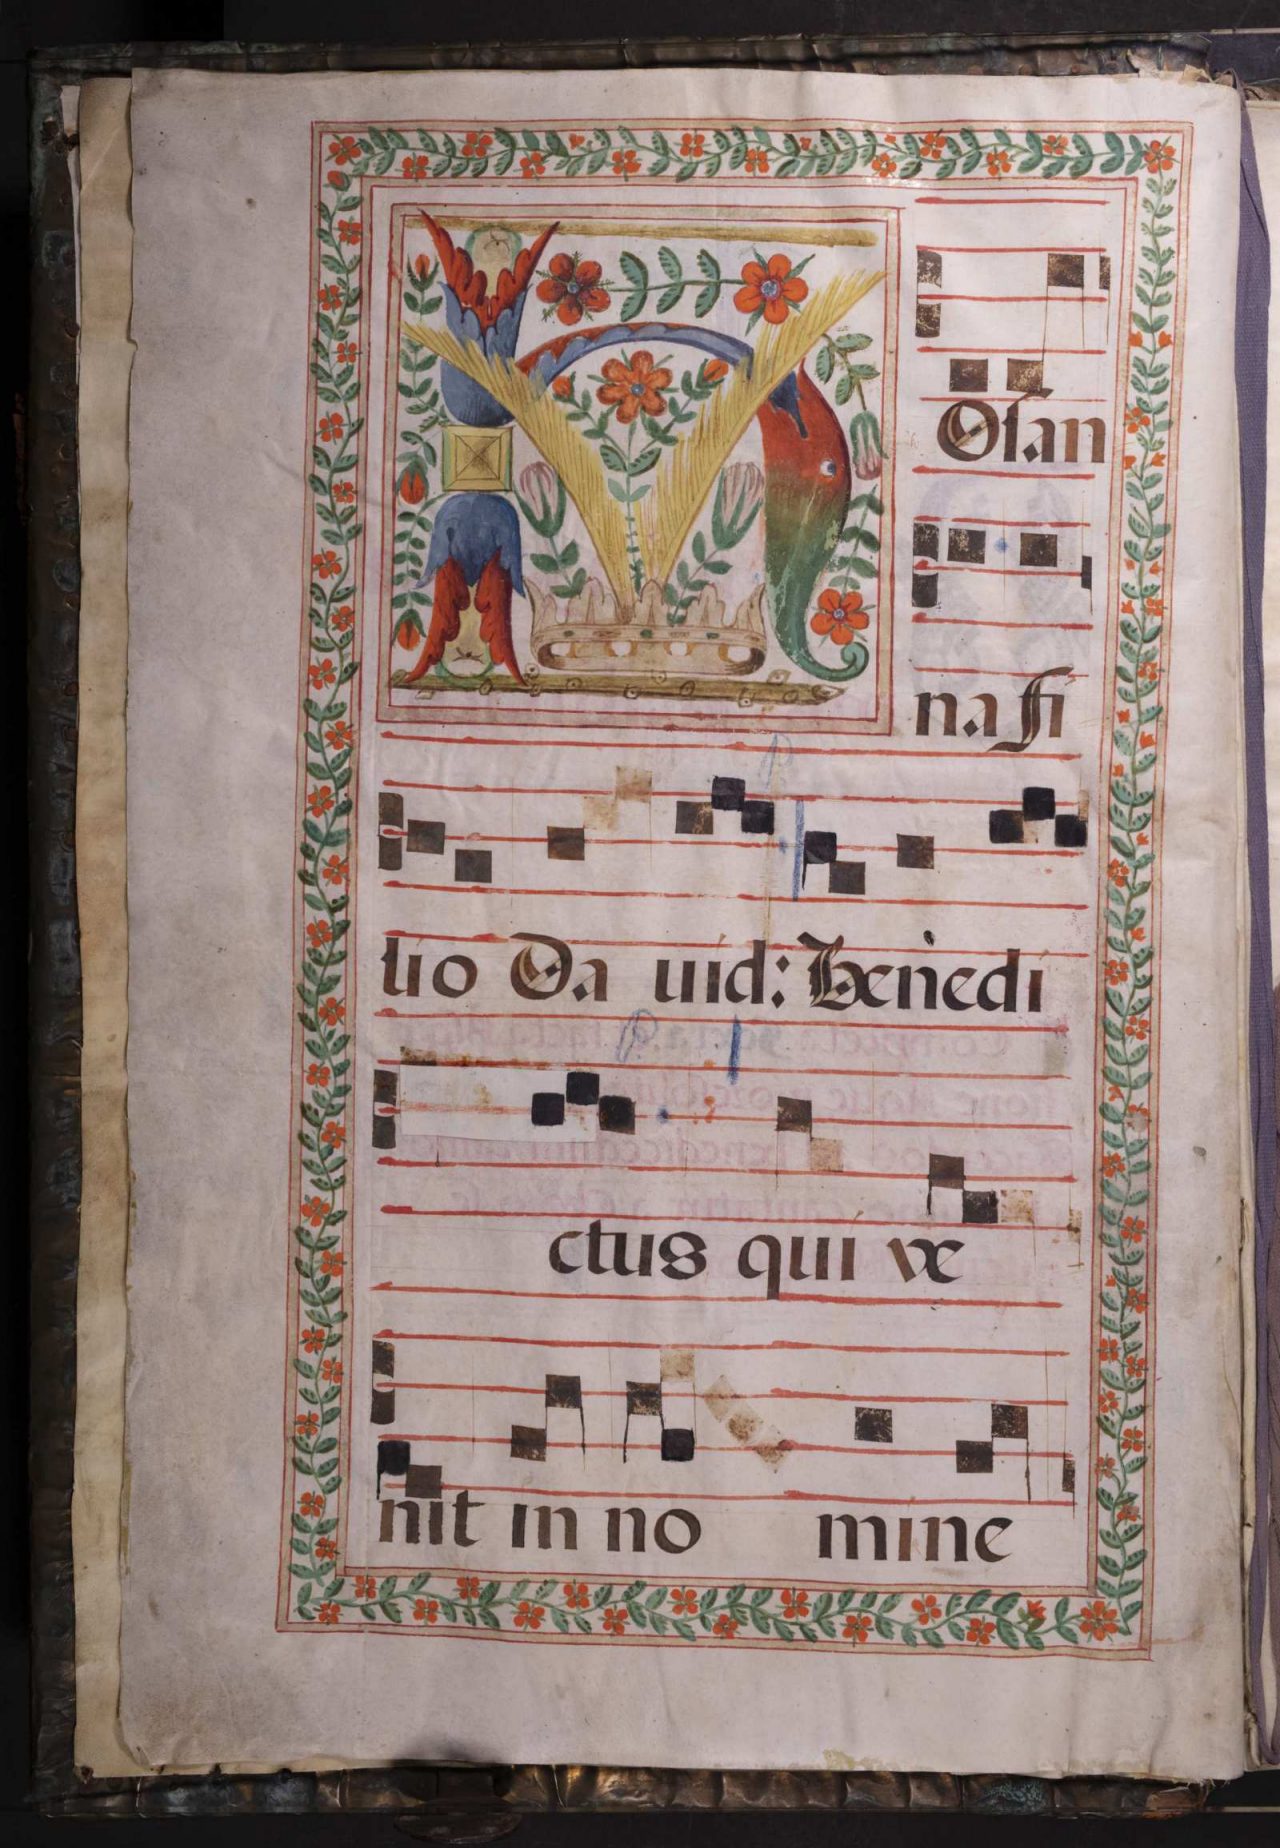 H Osan
na fi
lio Da uid: Benedi
ctus qui ve
nit in no mine